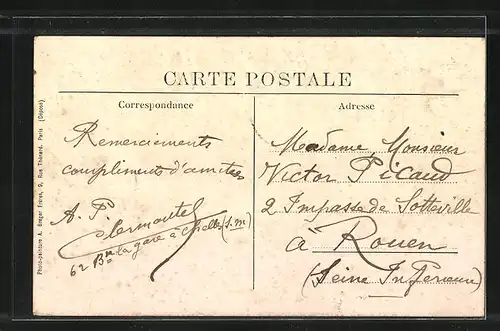 CARTE POSTALE
Correspondance
Remerciements
compliments d'amitiés
A. P.
Clermontel
62 Bd de la gare à Chelles (S.M)
Adresse
Madame, Monsieur
Victor Picaud
2 Impasse de Sotteville
à Rouen
(Seine Inférieure)
Photo-peinture A. Breger Frères, 9, Rue Thénard, Paris (Déposé)